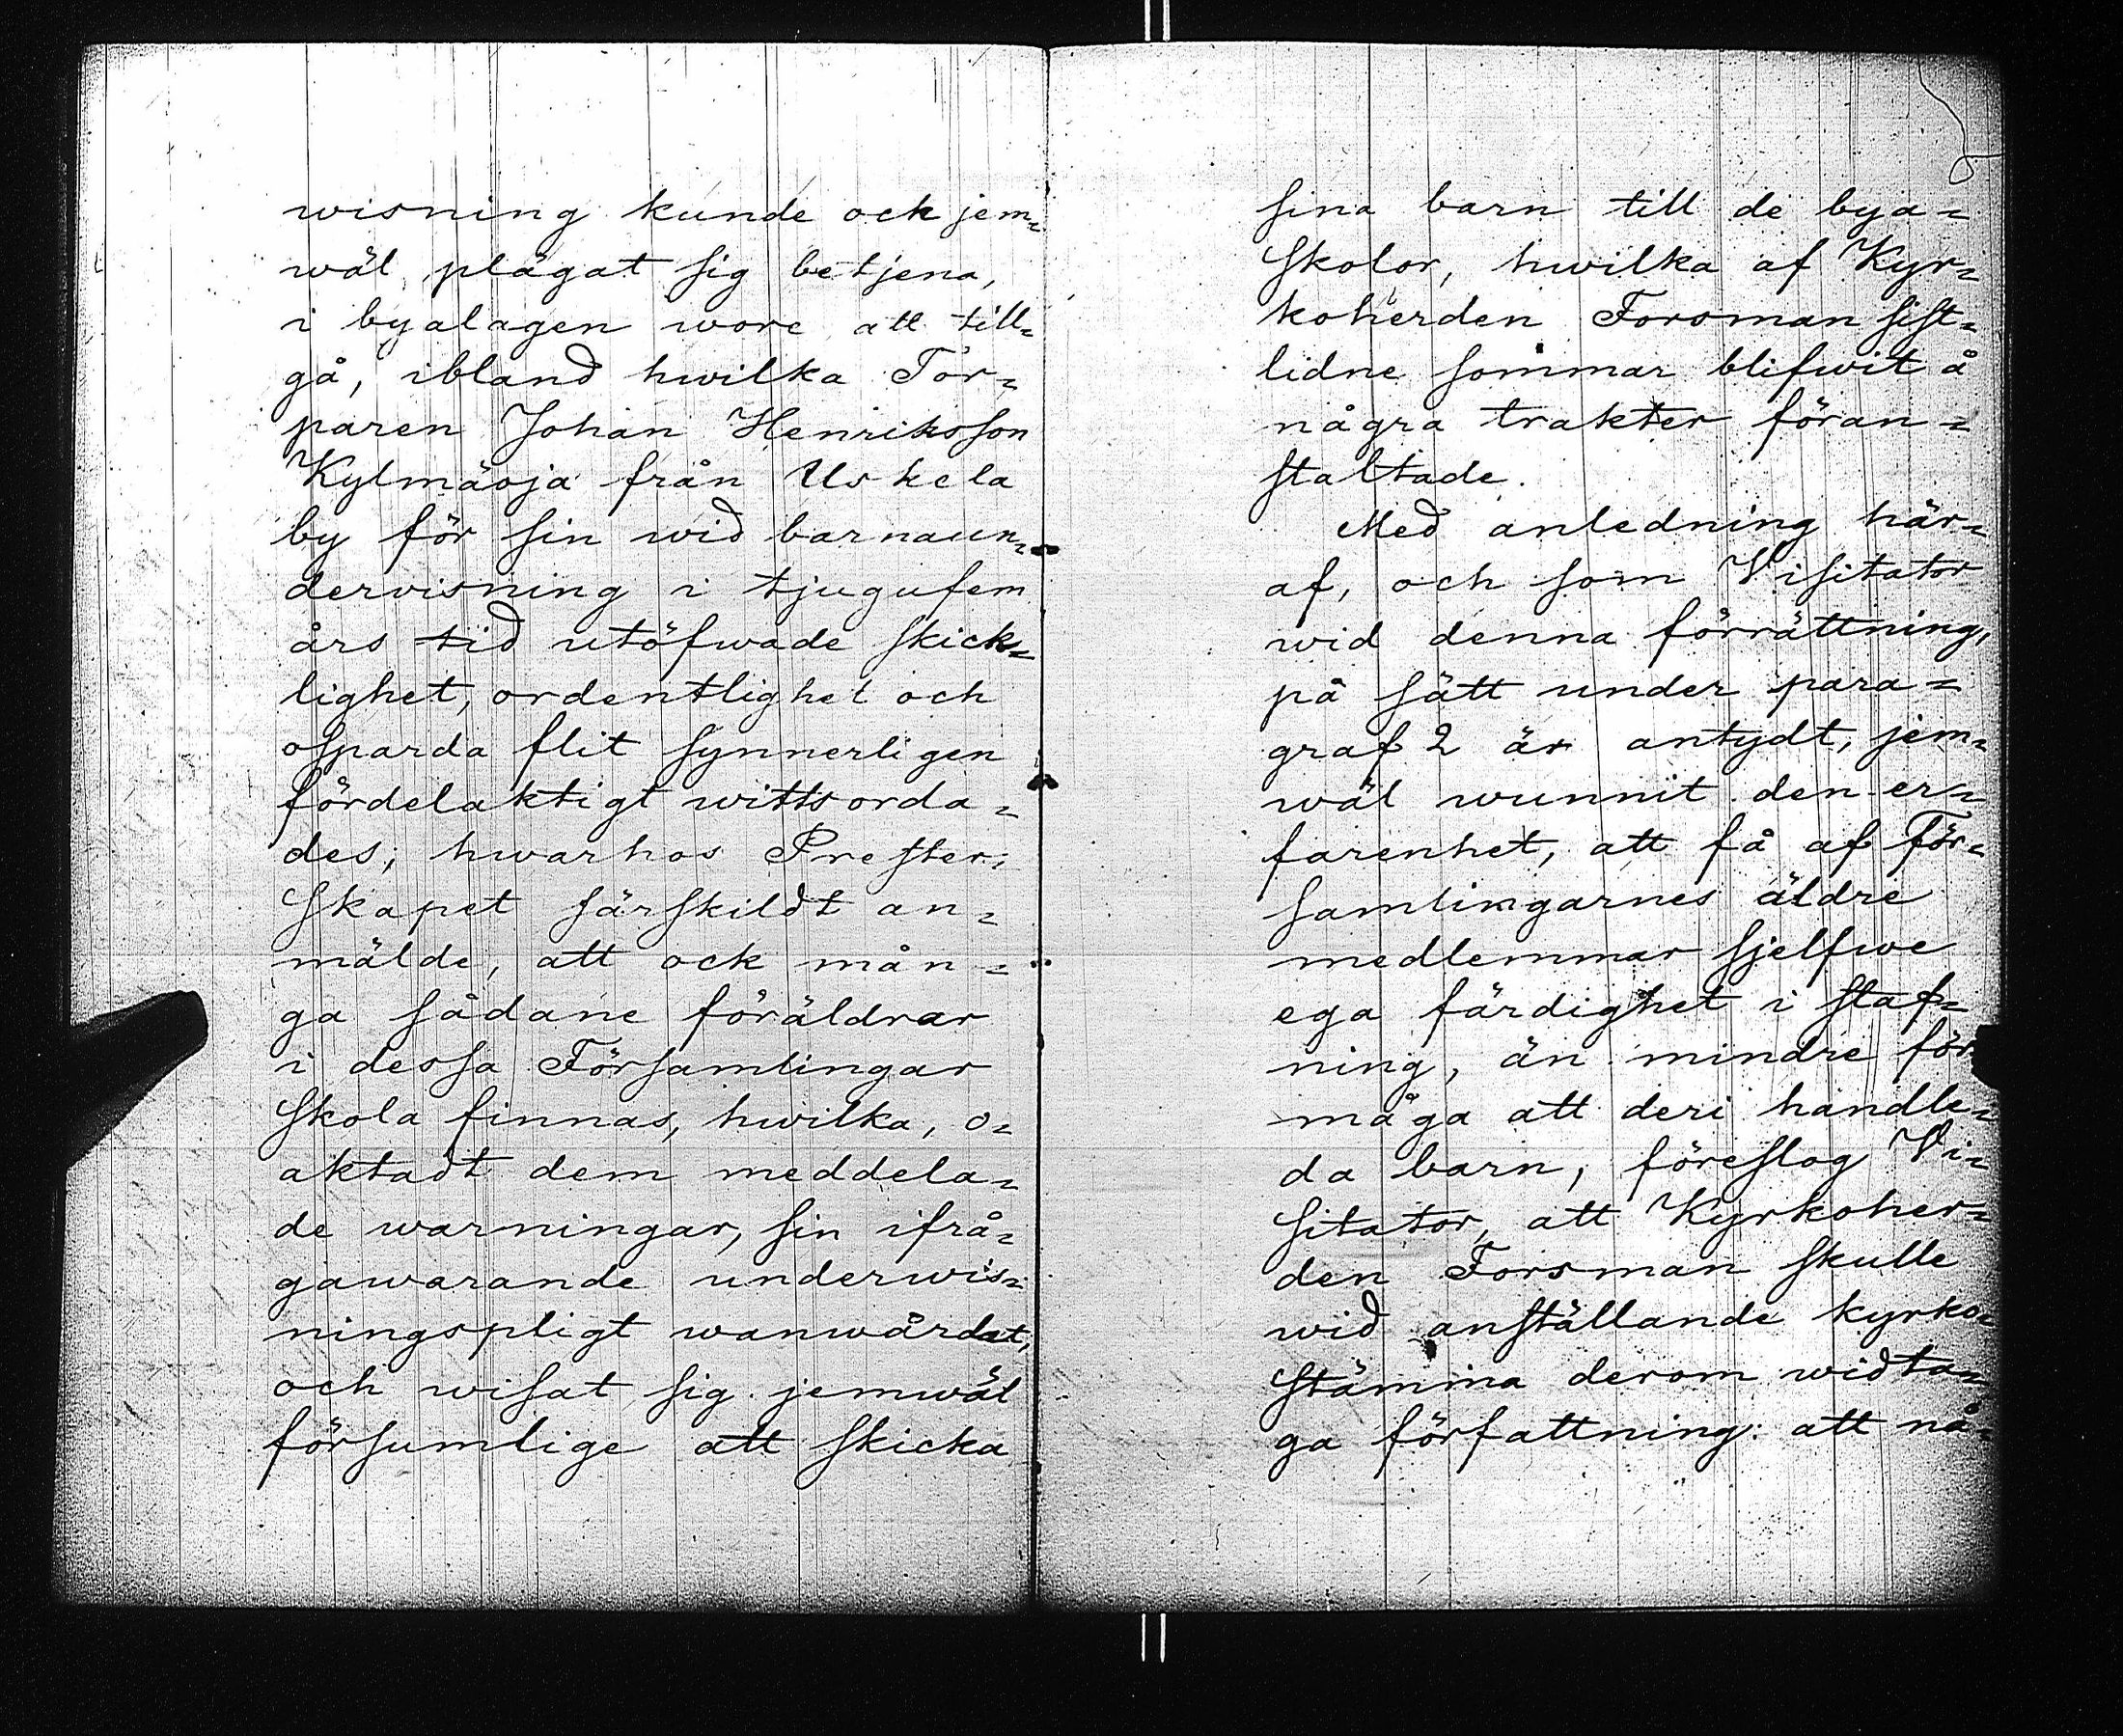 wisning kunde ock jem=
wäl plägat sig betjena,
i byalagen wore att till=
gå, ibland hwilka Tor=
paren Johan Henriksson
Kylmäoja från Uskela
by för sin wid barnaun=
dervisning i tjugufem
års tid utöfwade skick=
lighet, ordentlighet och
osparda flit synnerligen
fördelaktigt wittsorda=
des; hwarhos Prester=
skapet särskildt an=
mälde, att ock mån=
ga sådane föräldrar
i dessa Församlingar
skola finnas, hwilka, o=
aktadt dem meddela=
de warningar, sin ifrå=
gawarande underwis=
ningspligt wanwårdat,
och wisat sig jemwäl
försumlige att skicka
sina barn till de bya=
skolor, hwilka af Kyr=
koherden Forsman sist=
lidne sommar blifwit å
några trakter föran=
staltade.
Med anledning här=
af, och som Visitator
wid denna förrättning,
på sätt under para=
graf 2 är antydt, jem=
wäl wunnit den er=
farenhet, att få af För=
samlingarnes äldre
medlemmar sjelfwe
ega färdighet i staf=
ning, än mindre för
måga att deri handle=
da barn, föreslog Vi=
sitator, att Kyrkoher=
den Forsman skulle
wid anställande kyrko=
stämma derom widta=
ga författning: att nå=